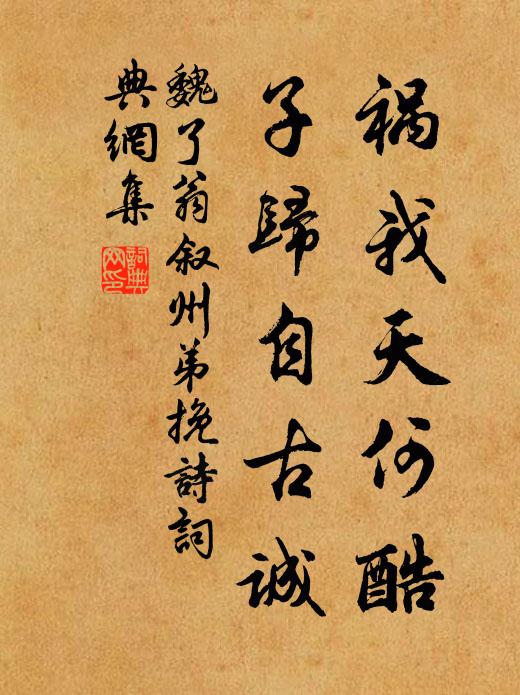 禍我天何酷
子歸自古誠
魏了翁叙州弟挽詩詞
典網集
詞典
网印